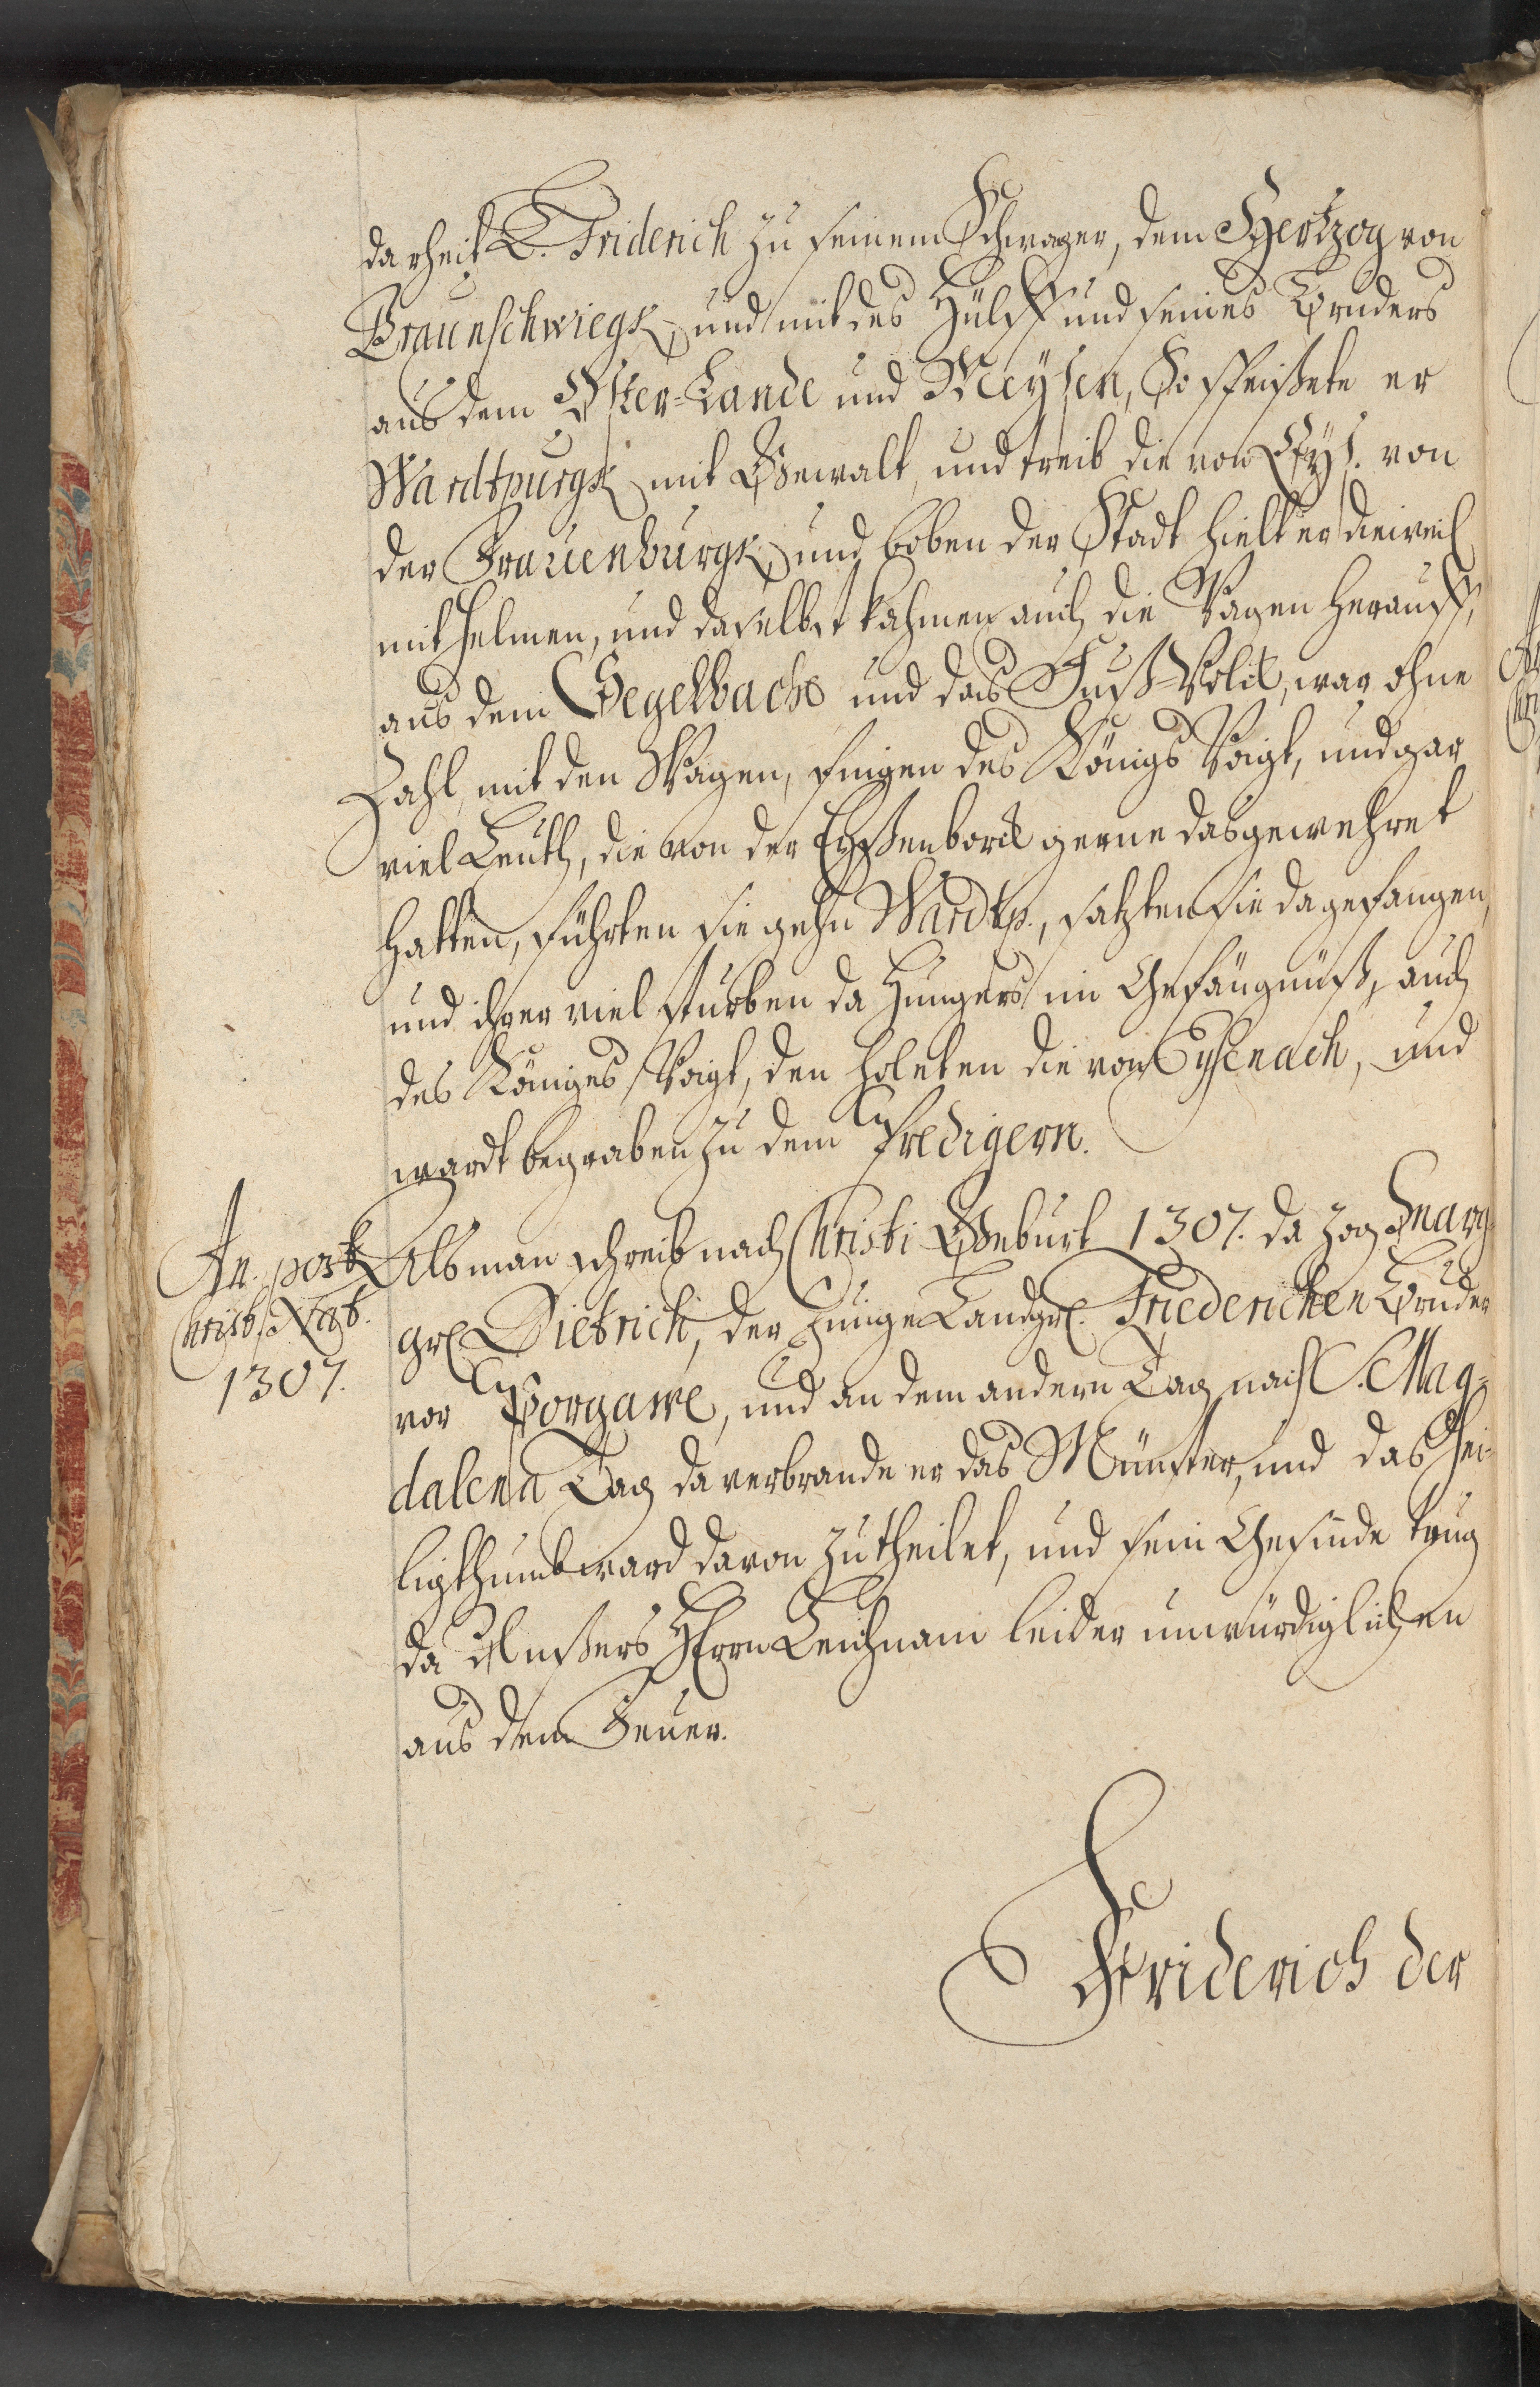 da rheit L. Friderich zu seinem Schwager, dem Hertzog von
Braunschwiegk, und mit des Hülff und seines Bruders
aus dem Oster-Lande und Meysen, So speisete er
Wardtpurgk mit Gewalt, und treib die von Eys. von
der Frauenburgk, und boben der Stadt hielt er dieweil
mit Helmen, und daselbst kahmen auch die Wagen herauff,
aus dem Gegelbache und das Fuß-Volck, war ohne
Zahl, mit den Wagen, fingen des Königs Voigt, und gar
viel Leuth, die von der Eyßenborck gerne das gewehret
hatten, führten sie gehn Wardtp., satzten sie da gefangen,
und ihrer viel sturben da Hungers im Gefängnüß, auch
des Königes Voigt, den holeten die von Eysenach, und
wardt begraben zu dem Predigern.
An. post
Christ. Nat.
1307.
Als man schreib nach Christi Geburt 1307. da zog Marg-
gr. Dietrich, der Junge Landgr. Friederichen Bruder
vor Porgawe, und an dem andern Tag nach S. Mag-
dalena Tag da verbrande er das Münster, und das Hei-
ligthumb ward davon zutheilet, und sein Gesinde trug
da Unßers Herrn Leichnam leider unwürdiglichen
aus dem Feuer.
Friderich der